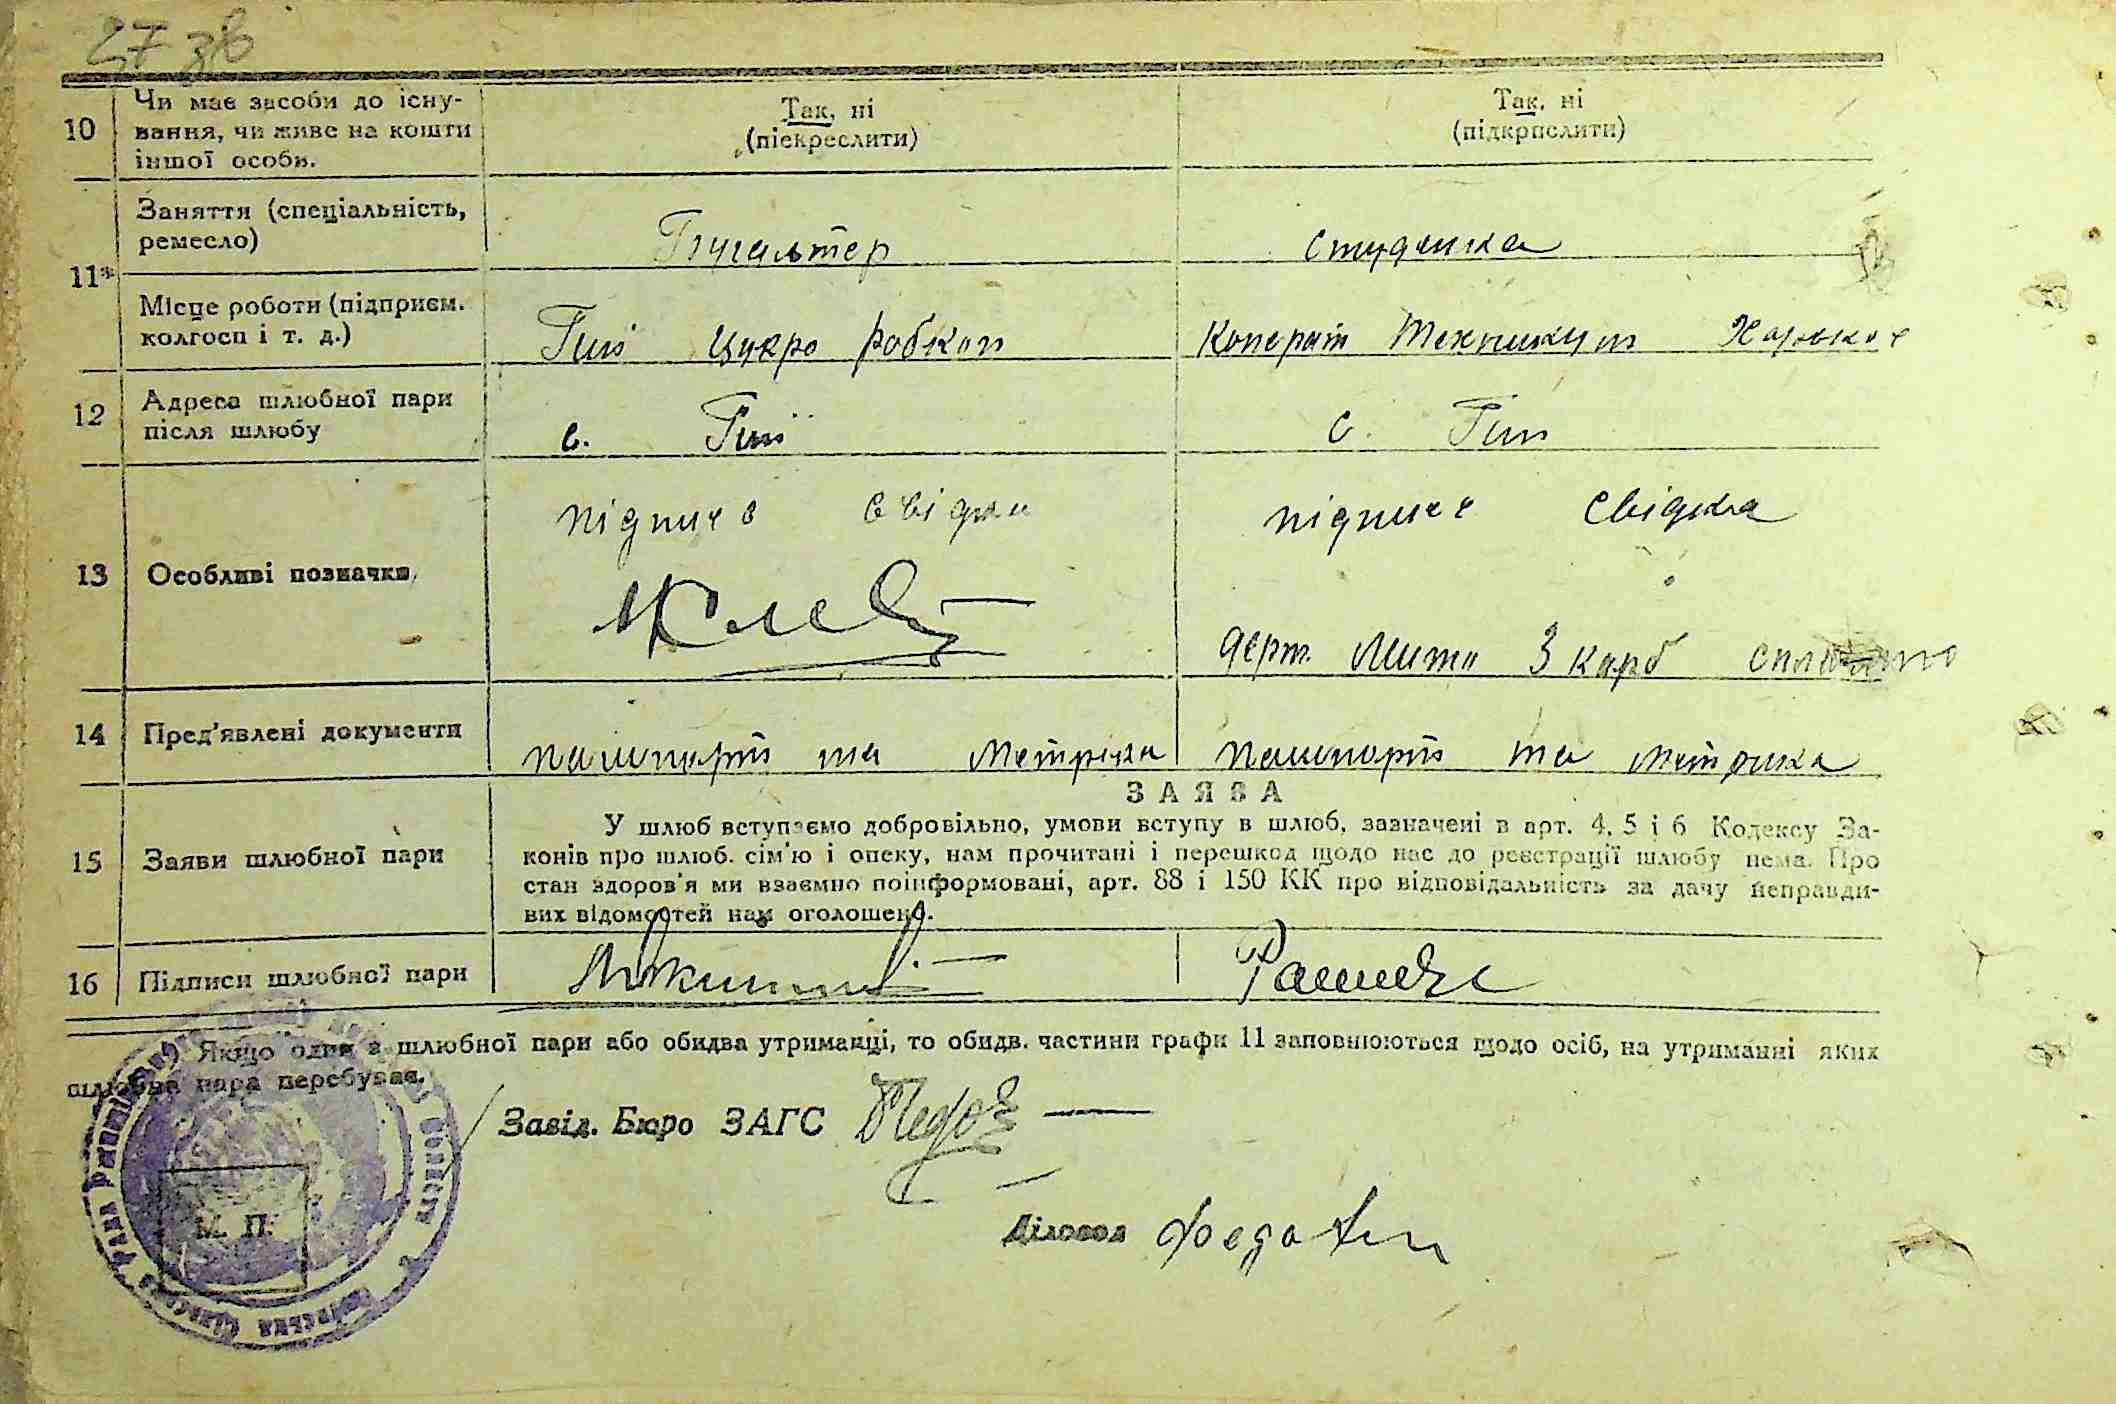 27 зв
10 Чи має засоби до існу-
вання, чи живе на кошти
іншої особи.
Так, ні
(піекреслити)
Так, ні
(підкрпслити)
11*
Заняття (спеціальність,
ремесло)
Бугальтер
студентка
Місце роботи (підприєм.
колгосп і т. д.)
Гиії Цукро Робкоп
Коперат Технікум Харьков
12 Адреса шлюбної пари
після шлюбу
с. Гиії
с. Гиії
13 Особливі позначки
підпис свідки
підпис свідка
держ. мита 3 карб сплачено
14 Пред'явлені документи
пашпорт та метрика
пашпорт та метрика
ЗАЯВА
15 Заяви шлюбної пари
У шлюб вступаємо добровільно, умови вступу в шлюб, зазначені в арт. 4, 5 і 6 Кодексу За-
конів про шлюб. сім'ю і опеку, нам прочитані і перешкод щодо нас до реєстрації шлюбу нема. Про
стан здоров'я ми взаємно поінформовані, арт. 88 і 150 КК про відповідальність за дачу неправди-
вих відомостей нам оголошено.
16 Підписи шлюбної пари
Якщо один з шлюбної пари або обидва утриманці, то обидв. частини графи 11 заповнюються щодо осіб, на утриманні яких
шлюбна пара перебуває.
Завід. Бюро ЗАГС
М. П.
Діловод